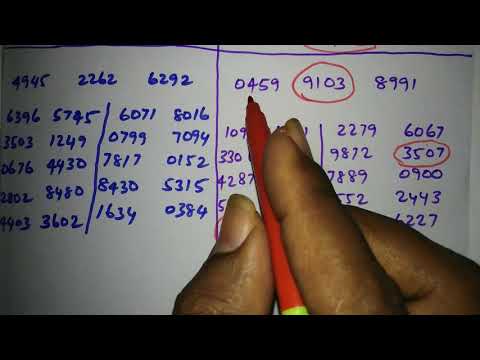 4945 2262 6292
6396 5745 6071 8016
3503 1249 0799 7094
0676 4430 7817 0152
2802 8480 8430 5315
4403 3602 1634 0384
0459 9103 8991
2279 6067
9872 3507
4287 7889 0900
2443
6227